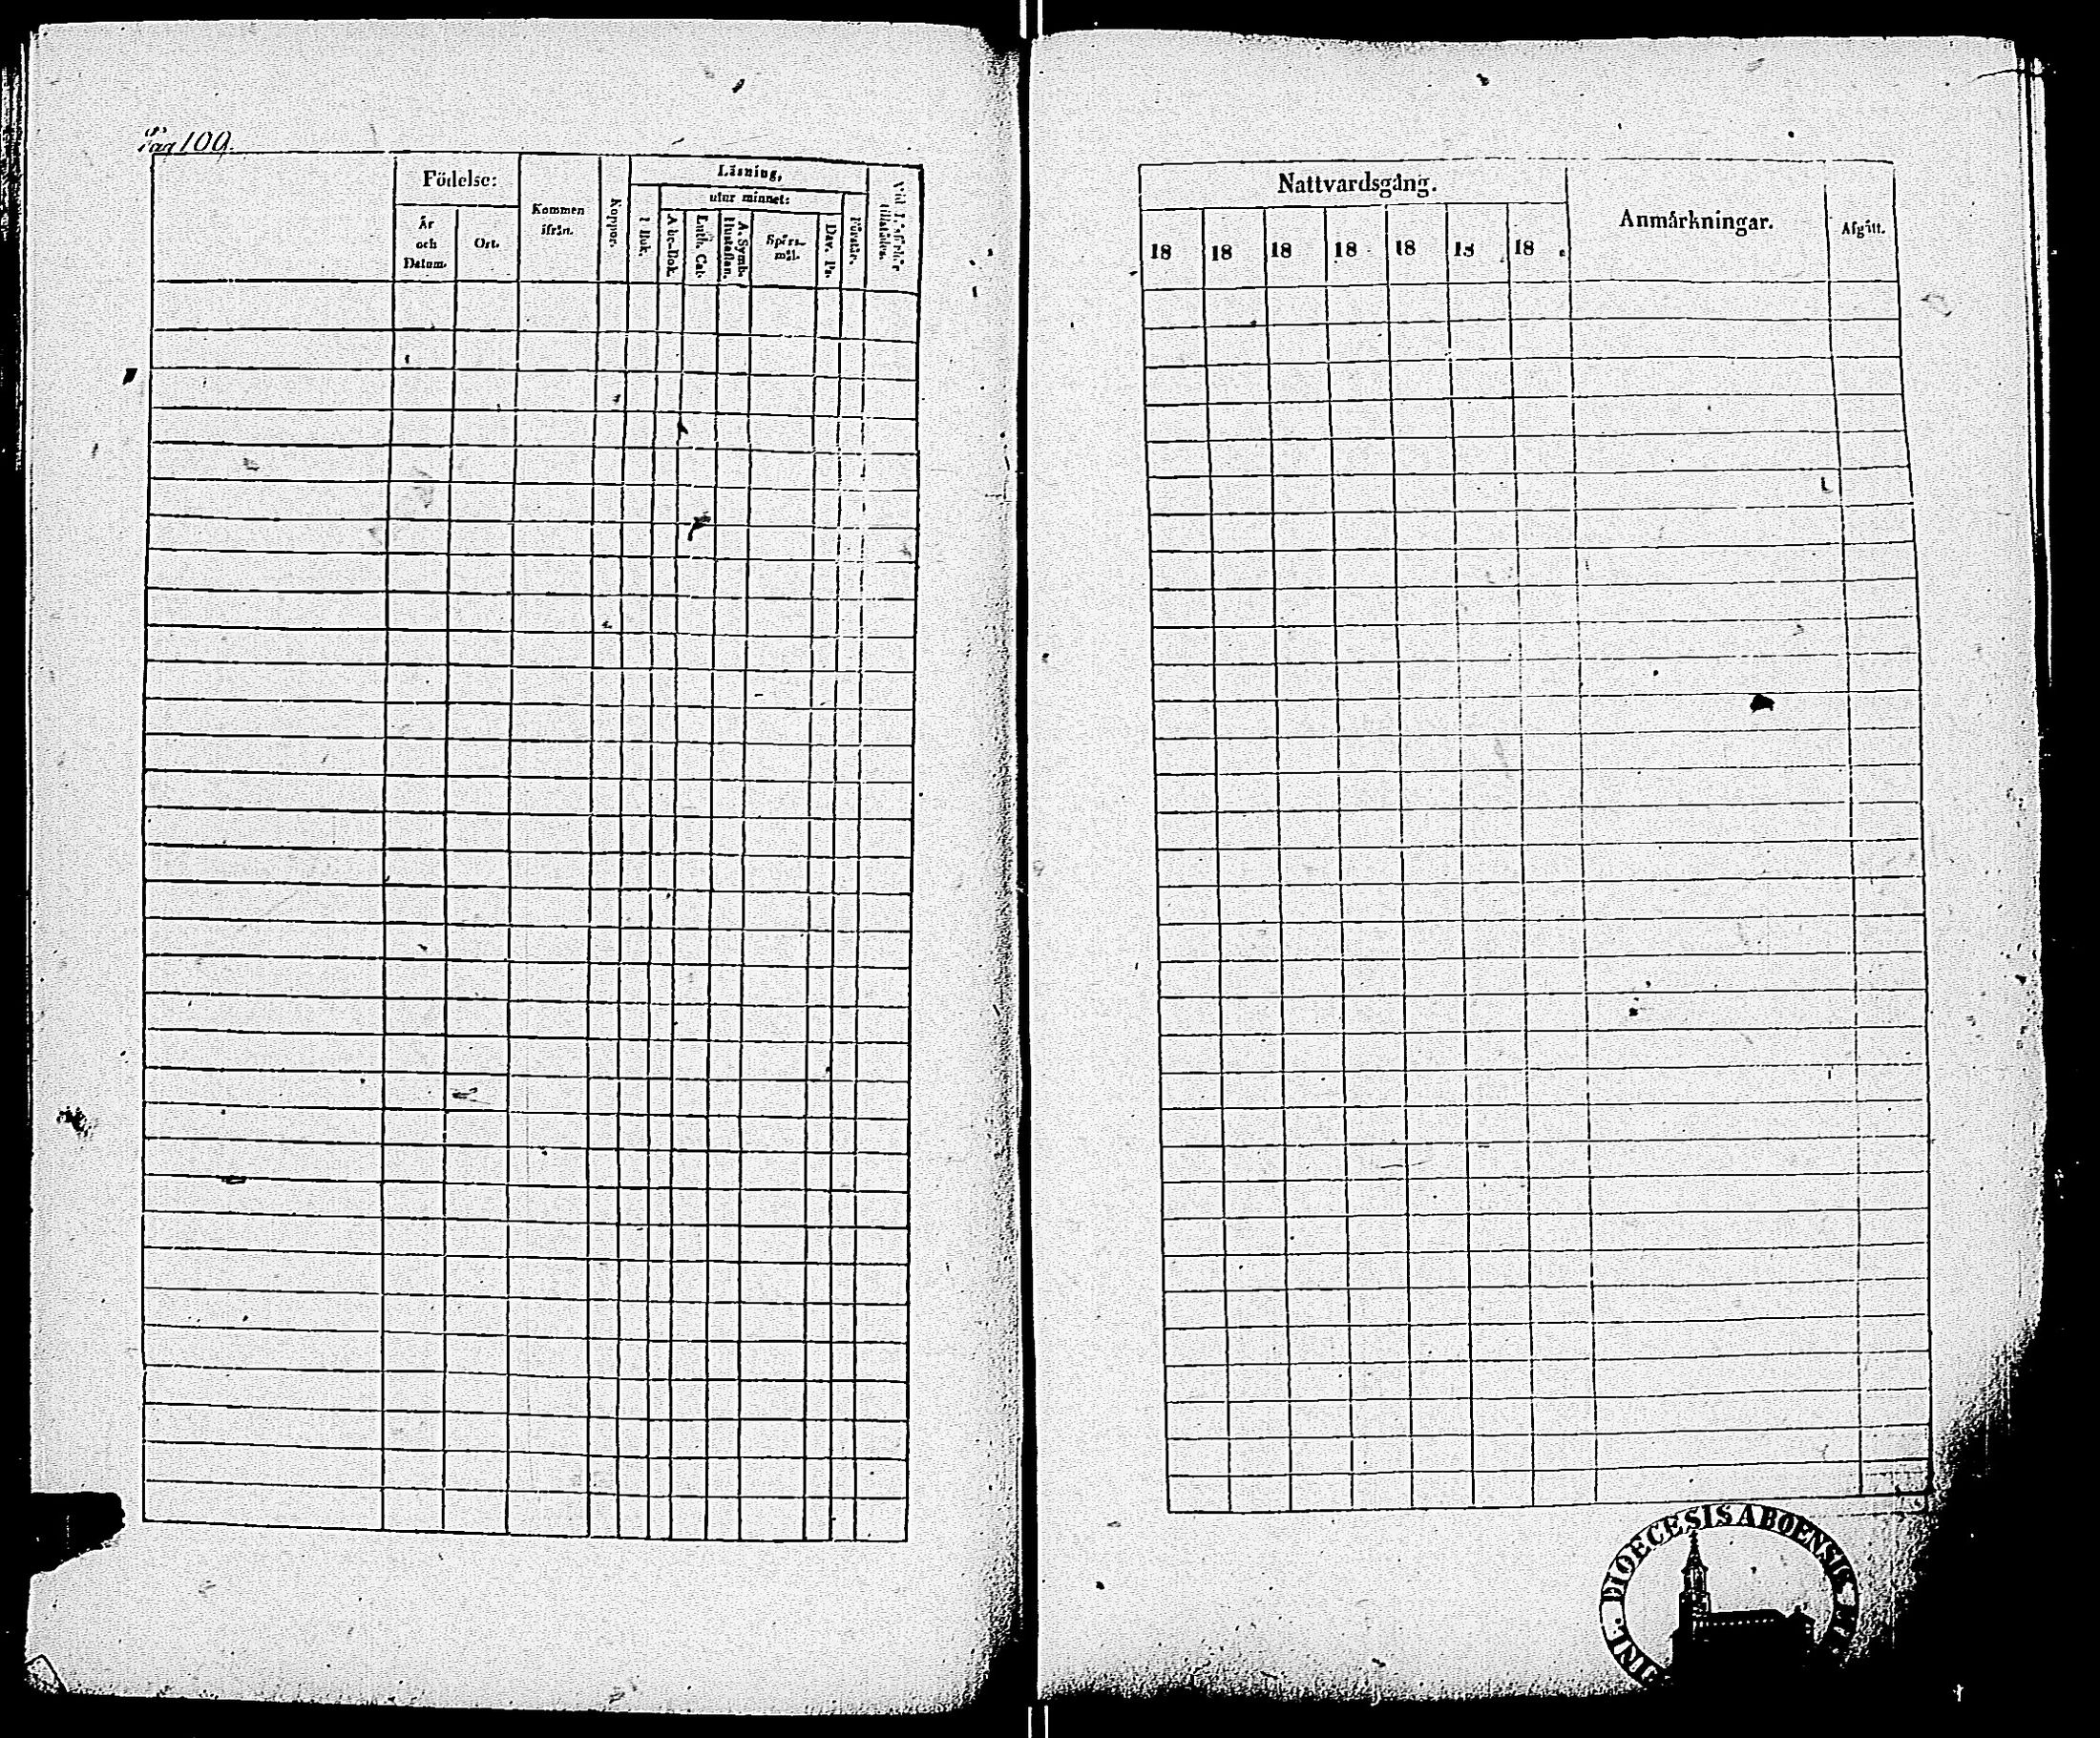 Pag 100.
Födelse:
År
och
Datum.
Ort.
Kommen
ifrån.
Koppor.
Läsning,
utur minnet:
I Bok.
A be-Bok.
Luth. Cat.
A. Symb.
Hustaflan.
Spörs-
mål.
Dav. Ps.
Förstår.
Vid Läsförhör
tillstädes.
Nattvardsgång.
18 18 18 18 18 18 18
Anmärkningar.
Afgått.
DIOECESIS ABOENSIS